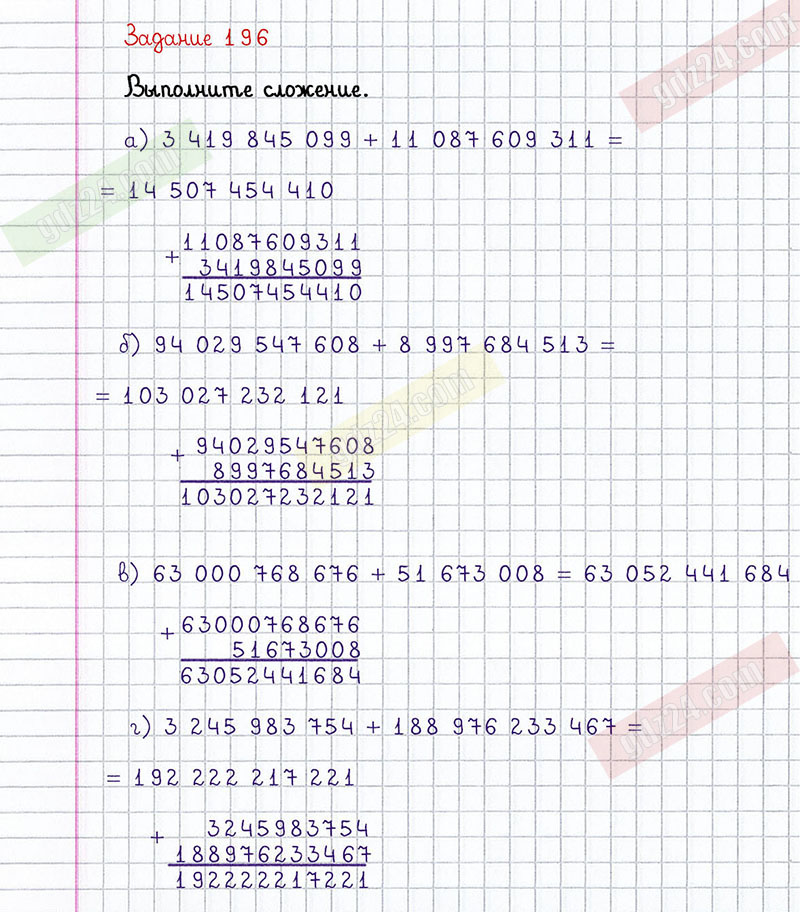 Задание 196
Выполните сложение.
а) 3 419 845 099 + 11 087 609 311 =
= 14 507 454 410
+
11087609311
3419845099
14507454410
б) 94 029 547 608 + 8 997 684 513 =
= 103 027 232 121
+
94029547608
8997684513
103027232121
в) 63 000 768 676 + 51 673 008 = 63 052 441 684
+
63000768676
51673008
63052441684
г) 3 245 983 754 + 188 976 233 467 =
= 192 222 217 221
+
3245983754
188976233467
192222217221
gdz24.com
gdz24.com
gdz24.com
gdz24.com